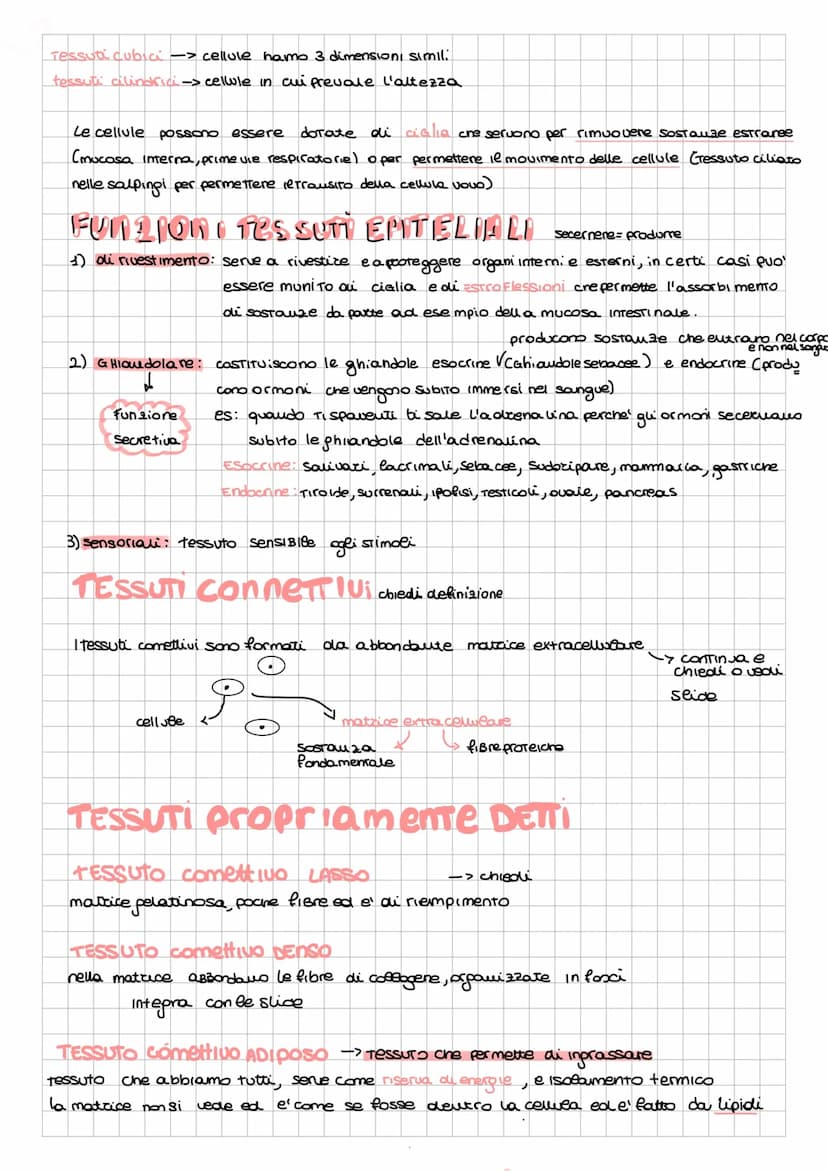 Tessuti cubici —> cellule hanno 3 dimensioni simili
tessuti cilindrici —> cellule in cui prevale l'altezza
Le cellule possono essere dotate di ciglia che servono per rimuovere sostanze estranee
(mucosa interna, prime vie respiratorie) o per permettere il movimento delle cellule (tessuto ciliato
nelle salpingi per permettere il transito della cellula uovo)
FUNZIONI TESSUTI EPITELIALI secernere = produrre
1) di rivestimento: serve a rivestire e a proteggere organi interni e esterni, in certi casi può
essere munito di ciglia e di estroflessioni che permette l'assorbimento
di sostanze da parte ad esempio della mucosa intestinale.
producono sostanze che entrano nel corpo
e non nel sangue
2) Ghiandolare: costituiscono le ghiandole esocrine (Ghiandole sebacee) e endocrine (produ
cono ormoni che vengono subito immersi nel sangue)
Funzione
secretiva
es: quando ti spaventi ti sale l'adrenalina perche' gli ormoni secernano
subito le ghiandole dell'adrenalina
Esocrine: salivari, lacrimali, sebacee, sudoripare, mammaria, gastriche
Endocrine: tiroide, surrenali, ipofisi, testicoli, ovaie, pancreas
3) sensoriali: tessuto sensibile agli stimoli
TESSUTI CONNETTIVI chiedi definizione
I tessuti connettivi sono formati da abbondante matrice extracellulare
—> continua e
chiedi o vedi
slide
cellule
matrice extracellulare
sostanza
fondamentale
fibre proteiche
TESSUTI propriamente DETTI
TESSUTO connettivo LASSO —> chiedi
matrice gelatinosa, poche fibre ed e' di riempimento
TESSUTO connettivo DENSO
nella matrice abbondano le fibre di collagene, organizzate in fasci
integra con le slide
TESSUTO connettivo ADIPOSO —> tessuto che permette di ingrassare
tessuto che abbiamo tutti, serve come riserva di energie, e isolamento termico
la matrice non si vede ed e' come se fosse dentro la cellula ed e' fatto da lipidi